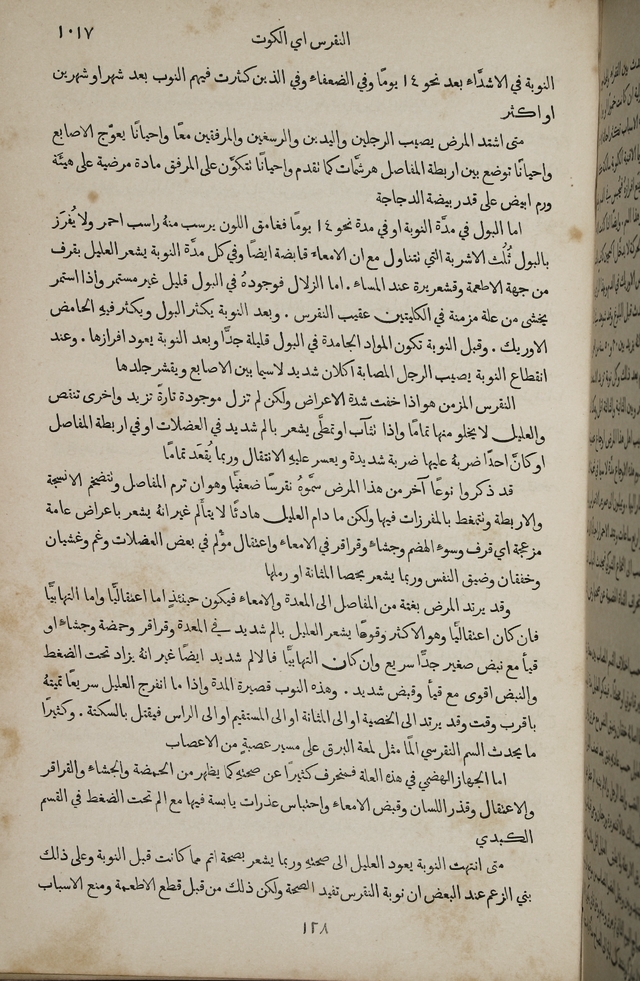 النقرس اي الكوت
١٠١٧
النوبة في الاشدَّاء بعد نحو ١٤ يومًا وفي الضعفاء وفي الذين كثرت فيهم النوب بعد شهر او شهرين
او اكثر
متى اشتد المرض يصيب الرجلين واليدين والرسغين والمرفقين معًا واحيانًا يعوّج الاصابع
واحيانًا توضع بين اربطة المفاصل هرشَّات كما تقدم واحيانًا تتكوَّن على المرفق مادة مرضية على هيئة
ورم ابيض على قدر بيضة الدجاجة
اما البول في مدَّة النوبة او في مدة نحو ١٤ يومًا فغامق اللون يرسب منهُ راسب احمر ولا يُفرَز
بالبول ثُلُث الاشربة التي تتناول مع ان الامعاء قابضة ايضًا وفي كل مدَّة النوبة يشعر العليل بقرف
من جهة الاطعمة وقشعريرة عند المساء . اما الزلال فوجودهُ في البول قليل غير مستمر واذا استمر
يخشى من علة مزمنة في الكليتين عقيب النقرس . وبعد النوبة يكثر البول ويكثر فيهِ الحامض
الاوريك . وقبل النوبة تكون المواد الجامدة في البول قليلة جدًّا وبعد النوبة يعود افرازها . وعند
انقطاع النوبة يصيب الرجل المصابة اكلان شديد لاسيما بين الاصابع ويقشر جلدها
النقرس المزمن هو اذا خفت شدة الاعراض ولكن لم تزل موجودة تارةً تزيد واخرى تنقص
والعليل لا يخلو منها تمامًا واذا تثآب او تمطَّى يشعر بالم شديد في العضلات او في اربطة المفاصل
او كأنَّ احدًا ضربهُ عليها ضربة شديدة ويعسر عليهِ الانتقال وربما يُقعَد تمامًا
قد ذكروا نوعًا آخر من هذا المرض سمَّوهُ نقرسًا ضعفيًّا وهو ان ترم المفاصل وتتضخم الانسجة
والاربطة وتتمغط بالمفرزات فيها ولكن ما دام العليل هادئًا لا يتألم غير انهُ يشعر باعراض عامة
مزعجة اي قرف وسوء الهضم وجشاء وقراقر في الامعاء واعتقال مؤلم في بعض العضلات وغم وغشيان
وخفقان وضيق النفس وربما يشعر بحصا المثانة او رملها
وقد يرتد المرض بغتة من المفاصل الى المعدة والامعاء فيكون حينئذٍ اما اعتقاليًّا واما التهابيًّا
فان كان اعتقاليًّا وهو الاكثر وقوعًا يشعر العليل بالم شديد في المعدة وقراقر وحمضة وجشاء او
قيأ مع نبض صغير جدًّا سريع وان كان التهابيًّا فالالم شديد ايضًا غير انهُ يزاد تحت الضغط
والنبض اقوى مع قيأ وقبض شديد . وهذه النوب قصيرة المدة واذا ما انفرج العليل سريعًا تميتهُ
باقرب وقت وقد يرتد الى الخصية او الى المثانة او الى المستقيم او الى الراس فيقتل بالسكتة . وكثيرًا
ما يحدث السم النقرسي المًا مثل لمعة البرق على مسير عصبةٍ من الاعصاب
اما الجهاز الهضمي في هذه العلة فينحرف كثيرًا عن صحتهِ كما يظهر من الحمضة والجشاء والقراقر
والاعتقال وقذر اللسان وقبض الامعاء واحتباس عذرات يابسة فيها مع الم تحت الضغط في القسم
الكبدي
متى انتهت النوبة يعود العليل الى صحتهِ وربما يشعر بصحة اتم مما كانت قبل النوبة وعلى ذلك
بني الزعم عند البعض ان نوبة النقرس تفيد الصحة ولكن ذلك من قبل قطع الاطعمة ومنع الاسباب
١٢٨